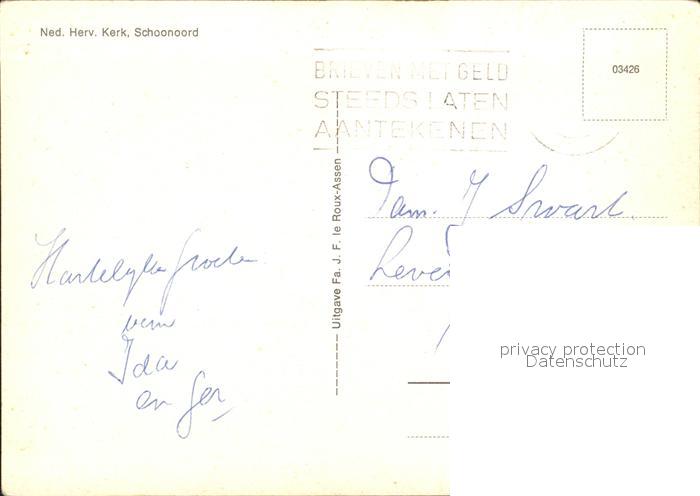 Ned. Herv. Kerk, Schoonoord
03426
BRIEVEN MET GELD
STEEDS LATEN
AANTEKENEN
Uitgave Fa. J. F. le Roux-Assen
Fam. J Swart.
Hartelijke Groeten
van
Ida
en Ger
privacy protection
Datenschutz